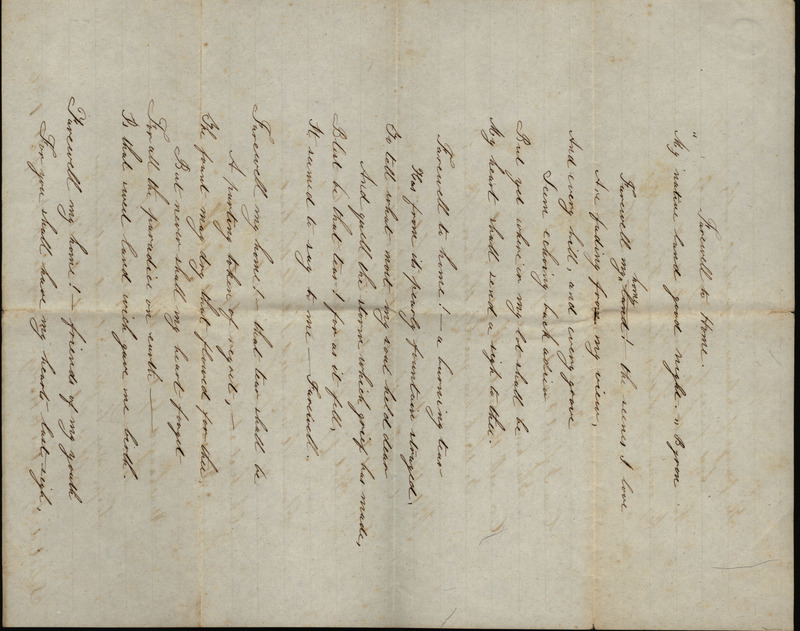 Farewell to Home.
"My native land good night." Byron
Farewell my home land! the scenes I love
Are fading from my view,
And every hill, and every grove
Seem echoing back adieu
But yet where'er my lot shall be
My heart shall send a sigh to thee.
Farewell to home! — a burning tear
Has from its pearly fountain strayed,
To tell what most my soul held dear
And quell the storm which grief has made,
Blest be that tear! for as it fell,
It seemed to say to me — Farewell.
Farewell my home! — that tear shall be
A parting token of regret, —
The fount may dry that flowed for thee,
But never shall my heart forget
For all the paradise on earth —
Is that wild land wich gave me birth.
Farewell my home! — friends of my youth
For you shall have my heart's last sigh,